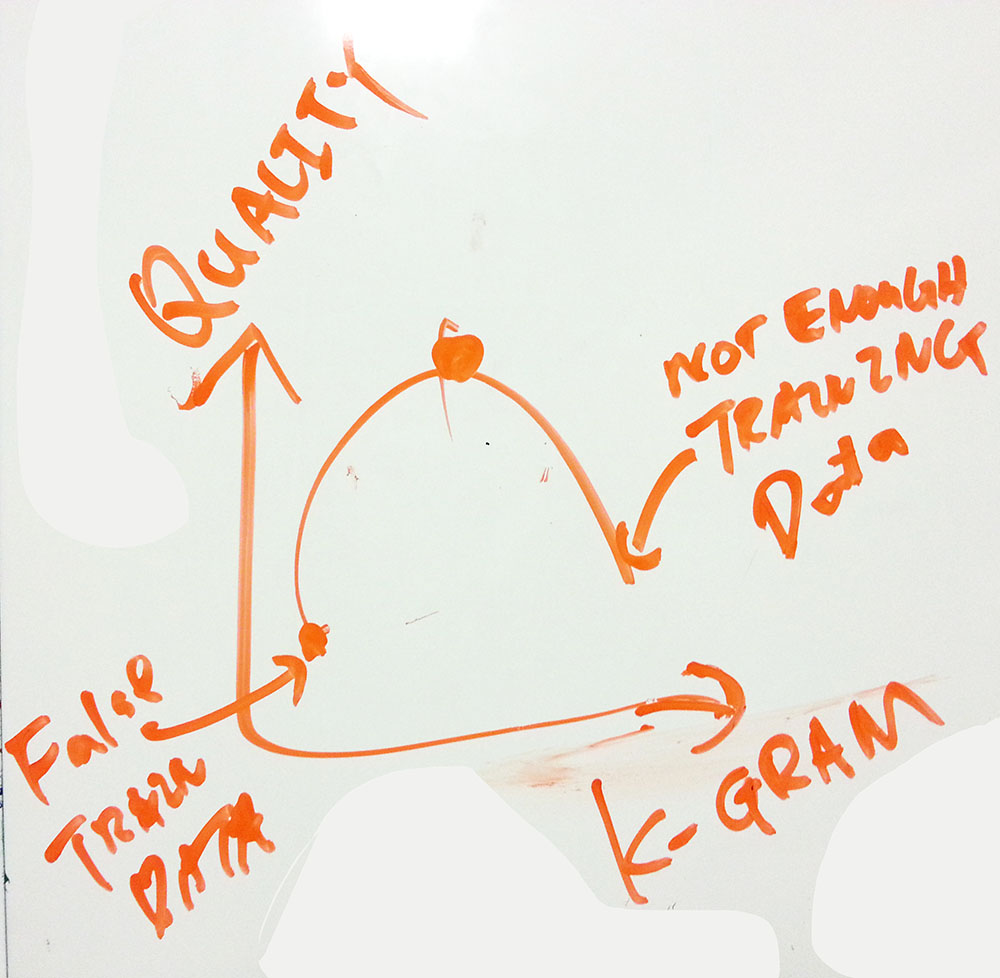 QUALITY
NOT ENOUGH
TRAINING
Data
False
TRAIN
DATA
K-GRAM